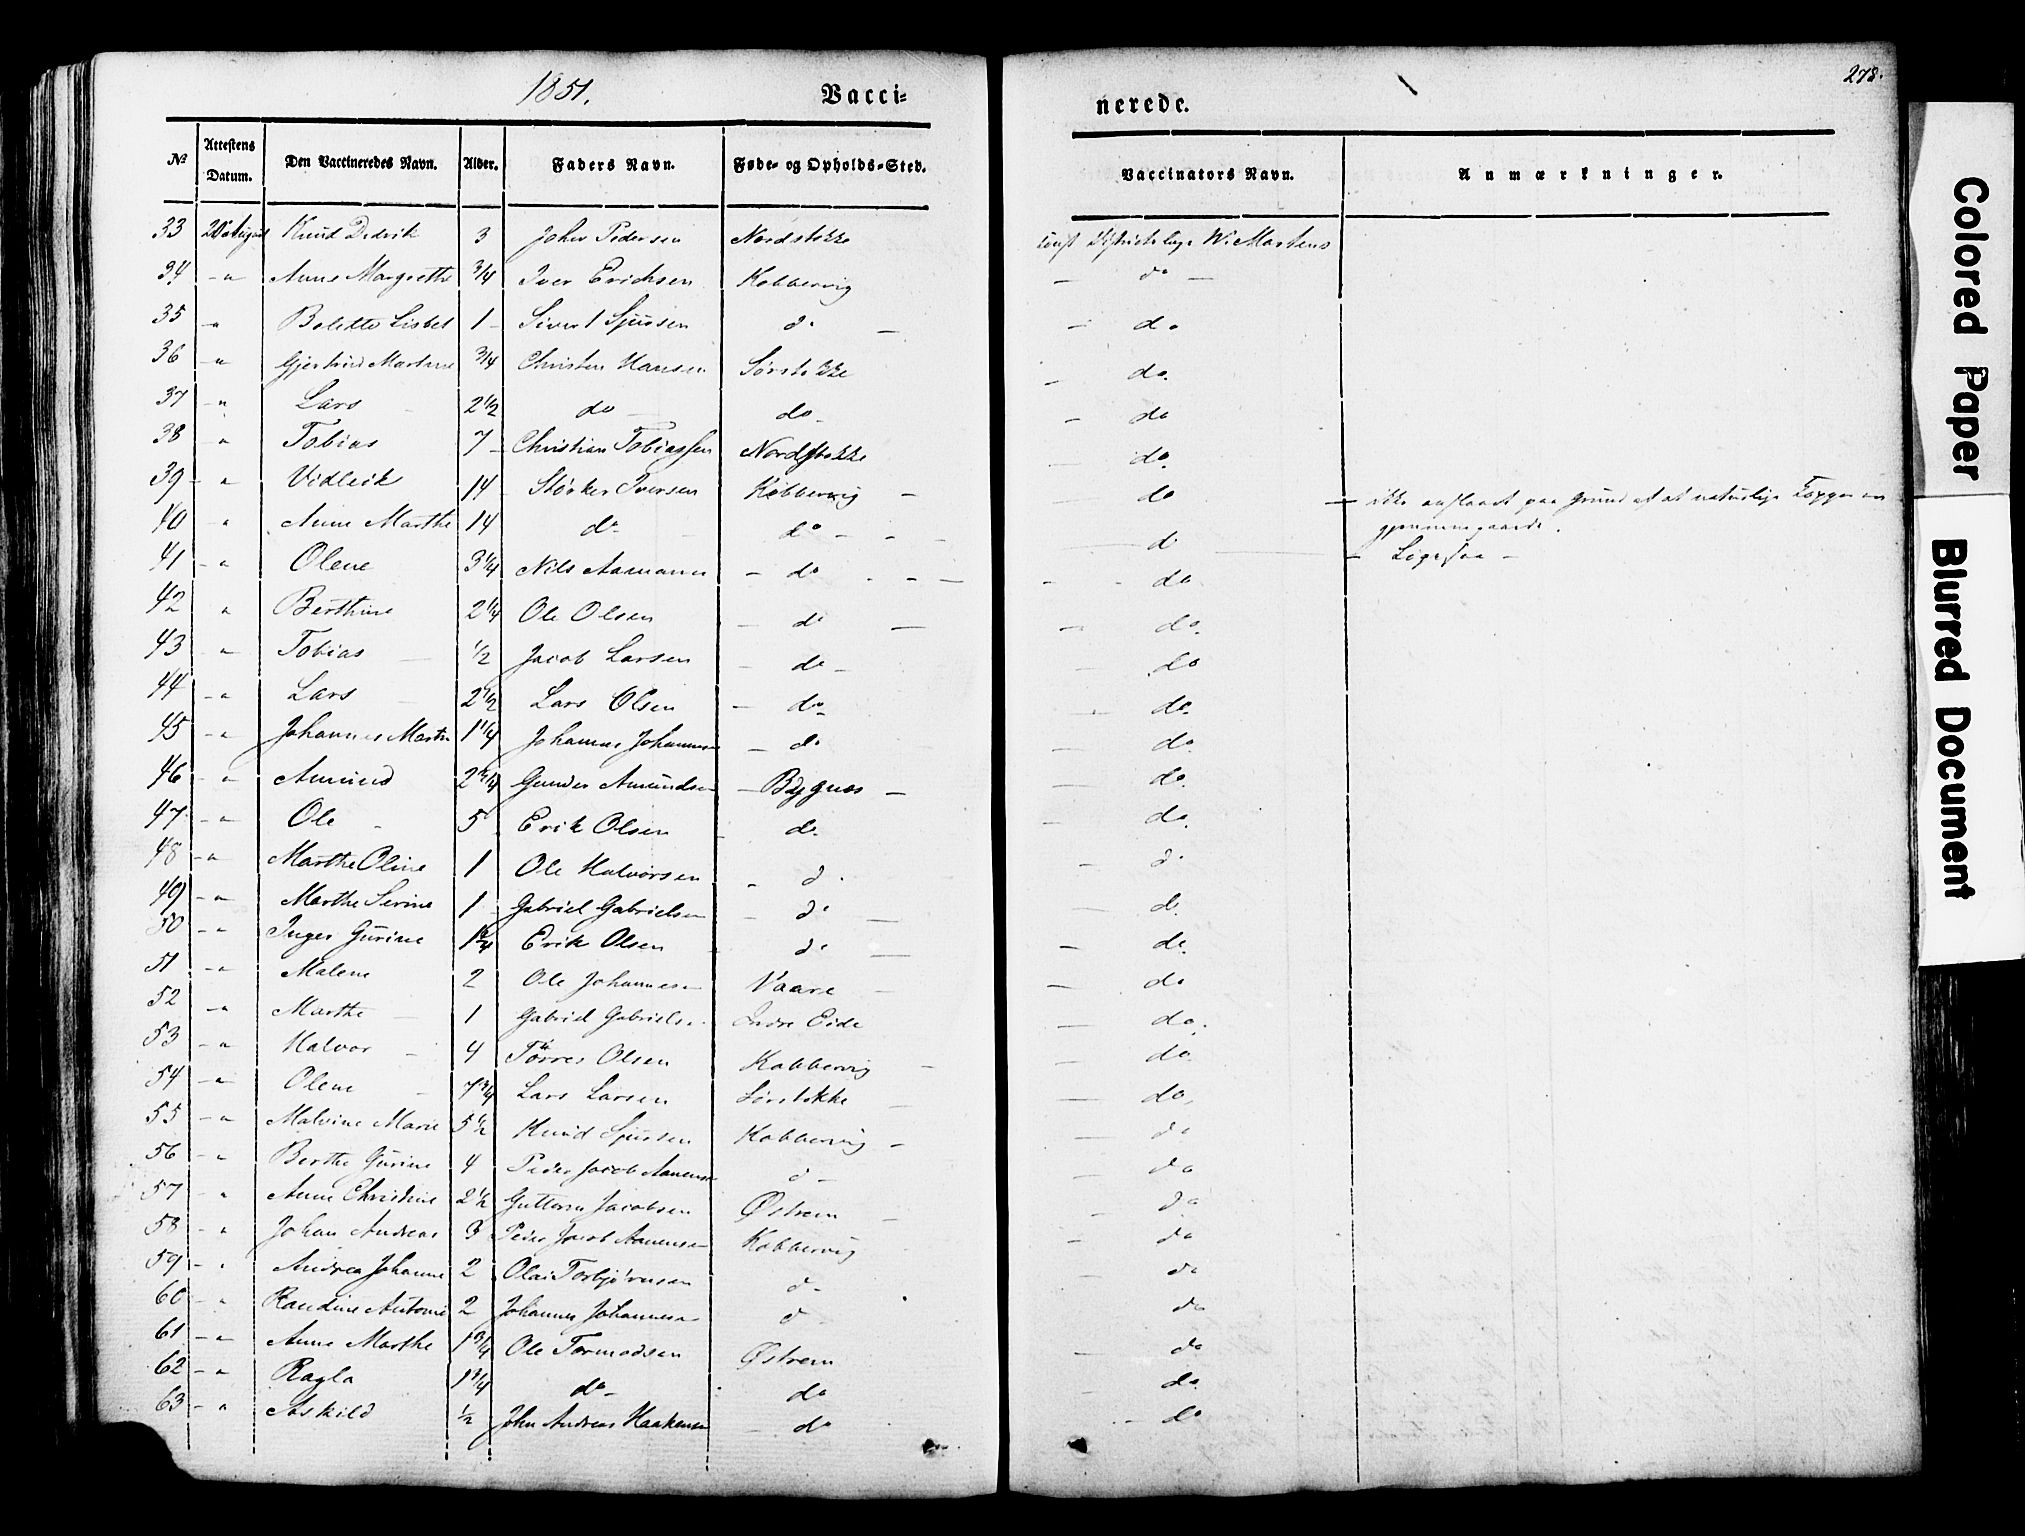 1851.
Vacci=
nerede.
278.
No Attestens Datum. Den Vaccineredes Navn. Alder. Faders Navn. Føde- og Opholds-Sted. Vaccinators Navn. Anmærkninger.
33 20 August Knud Didrik 3 Johan Pedersen Nordstokke const Districtslæge W. Martens
34 - " Anne Margrethe 3/4 Iver Erichsen Kobbervig - do -
35 - " Bolette Lisbet 1 - Sivert Sjursen do - - do
36 - " Gjertrud Martine 3/4 Christen Hansen Sørstokke - do.
37 - " Lars 2 1/2 do - do - - do
38 " Tobias 7 - Christian Tobiassen Nordstokke - do.
39 - " Vidleik 14 - Størker Iversen Kobbervig - do - ikke anslaaet paa Grund af at naturlige Kopper er
gjennemgaaede.
40 " Anne Marthe 14 do do - - - d - Ligesaa -
41 - " Olene 3 1/4 Nils Aamann - do - - - - - do
42 " Berthine 2 1/4 Ole Olsen - do - - do.
43 - " Tobias 1/2 Jacob Larsen - do - do
44 - " Lars 2 1/2 Lars Olsen - do - - do.
45 - " Johannes Martin 1 1/4 Johannes Johannesen - do - do
46 - " Amund 2 1/4 Gunder Amundsen - Bygnes - - do.
47 - " Ole 5 - Erik Olsen - do. - do.
48 - " Marthe Oline 1 Ole Halvorsen - d. - d.
49 - " Marthe Serine 1 - Gabriel Gabrielsen - do - - do.
50 - " Inger Gurine 1 1/4 Erik Olsen - do - - do.
51 - " Malene 2 Ole Johannesen Vaare - - do
52 - " Marthe - 1 Gabriel Gabrielsen Indre Eide - do.
53 - " Halvor - 4 Tørres Olsen Kobbervig - - do
54 - " Olene - 7 3/4 Lars Larsen Sørstokke - - do.
55 - " Malvine Marie 5 1/2 Knud Sjursen Kobbervig - - do
56 - " Berthe Gurine 4 Peder Jacob Aanensen d - - do
57 - " Anne Christine 2 1/2 Guttorm Jacobsen Østrem - - do
58 - " Johan Andreas 3 Peder Jacob Aanensen Kobbervig - do
59 - " Andrea Johanne 2 Olai Torbjørnsen d - - do
60 - " Randine Antonie 2 Johannes Johannesen d - do
61 - " Anne Marthe 1 3/4 Ole Tormodsen Østrem - do
62 - " Ragla 1 3/4 do - do - do.
63 - " Askild 1/2 John Andreas Haakensen - do - do
Colored Paper
Blurred Document